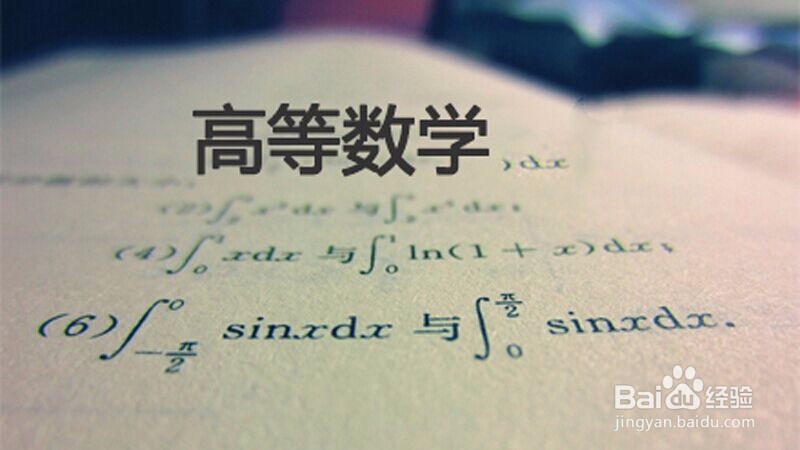 高等数学
)dx
(2)∫ x²dx 与∫ x³dx;
(4)∫₀¹ xdx 与∫₀¹ ln(1 + x)dx;
(6)∫_{-π/2}^{0} sinxdx 与∫_{0}^{π/2} sinxdx.
Baidu经验
jingyan.baidu.com